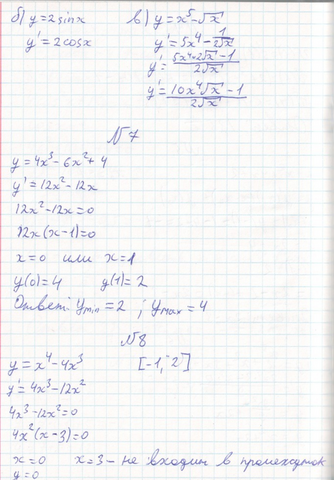 б) y=2sinx
y'=2cosx
в) y=x⁵-√x
y'=5x⁴-1/2√x
y'=5x⁴·2√x-1/2√x
y'=10x⁴√x-1/2√x
N7
y=4x³-6x²+4
y'=12x²-12x
12x²-12x=0
12x(x-1)=0
x=0 или x=1
y(0)=4 y(1)=2
Ответ: y min=2 ; y max=4
N8
y=x⁴-4x³ [-1; 2]
y'=4x³-12x²
4x³-12x²=0
4x²(x-3)=0
x=0 x=3- не входит в промежуток
y=0